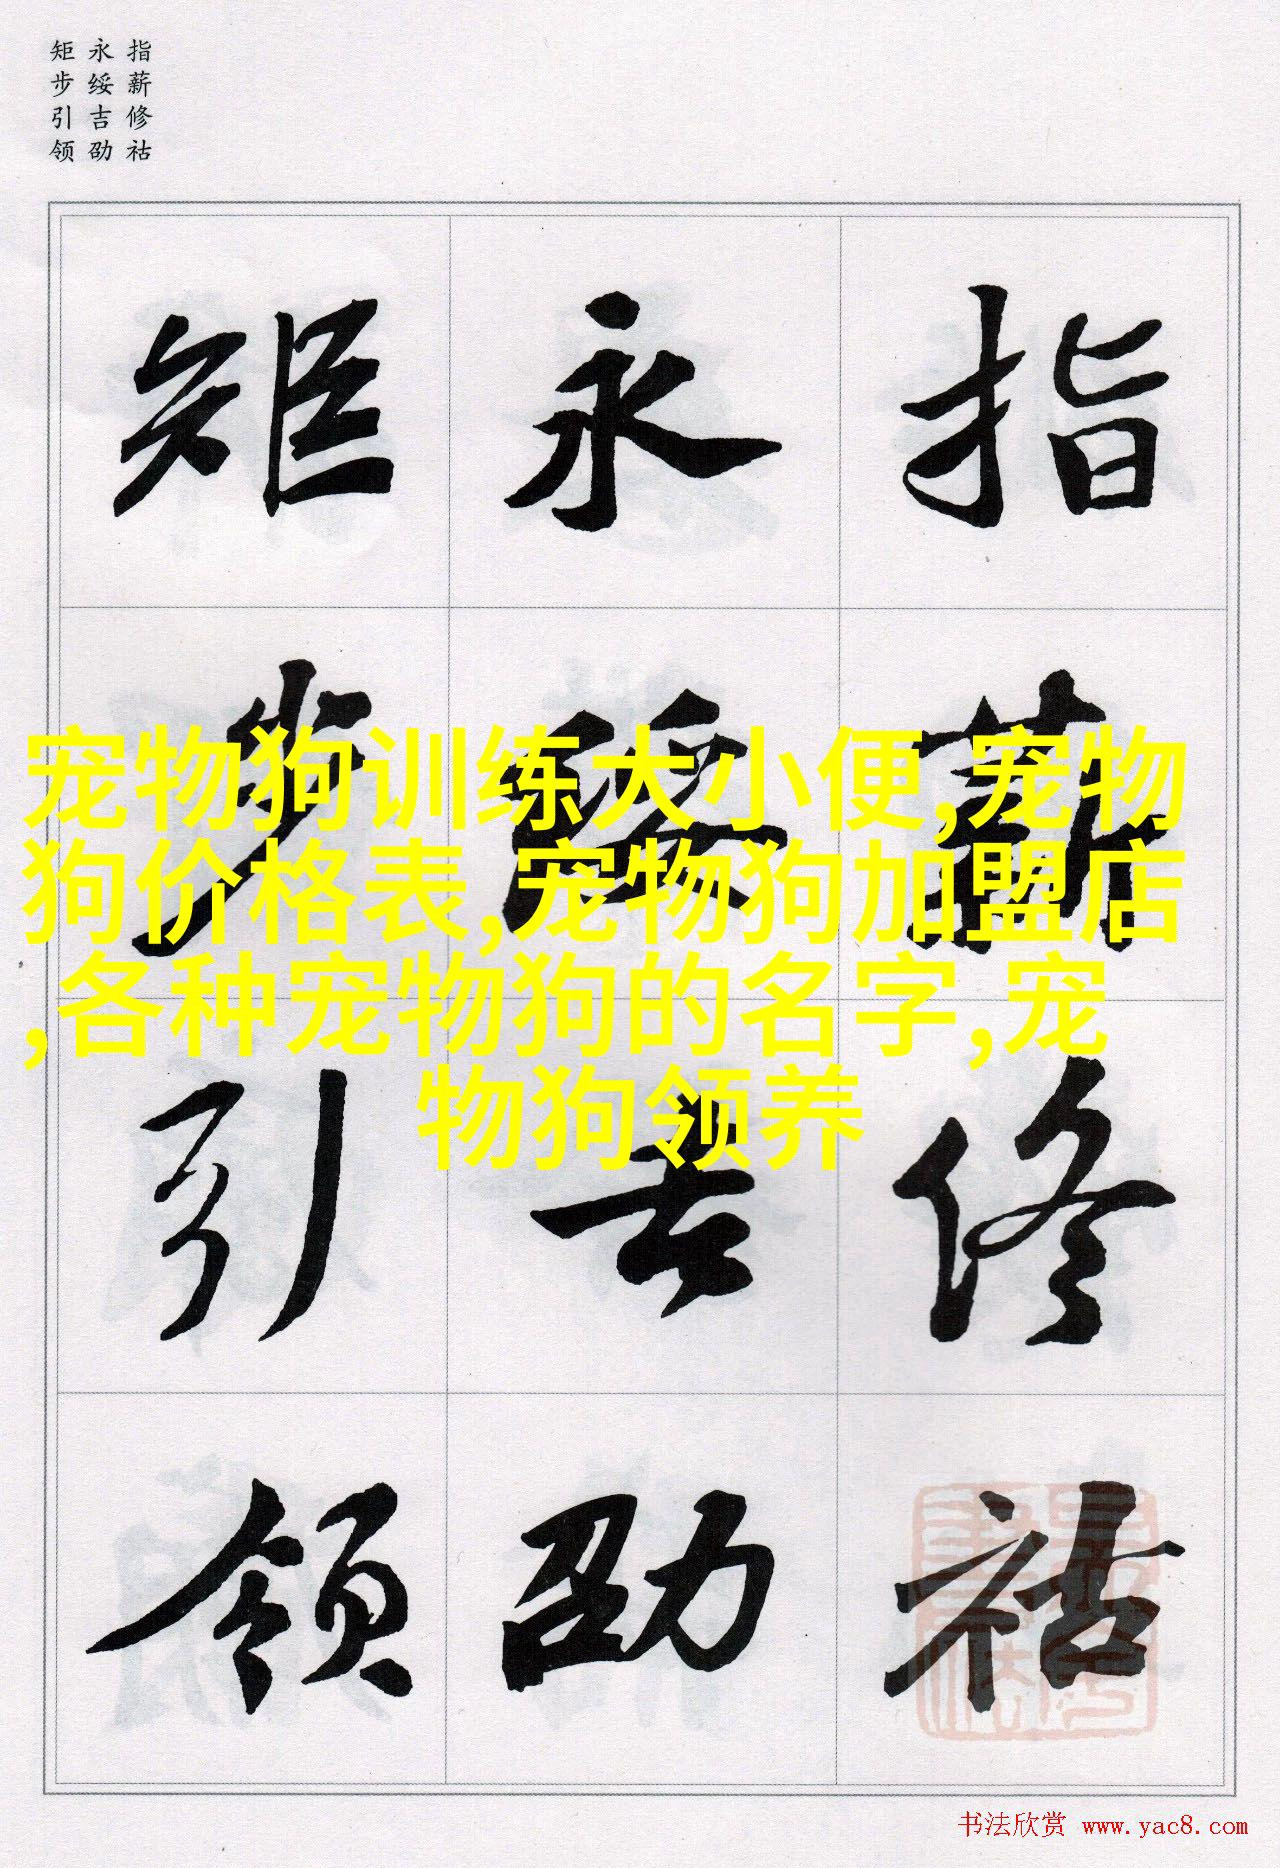 指薪修祜
永绥吉劭
矩步引领
指薪修祜
永绥吉劭
矩步引领
宠物狗训练大小便,宠物
狗价格表,宠物狗加盟店
,各种宠物狗的名字,宠
物狗领养
书法欣赏 www.yac8.com